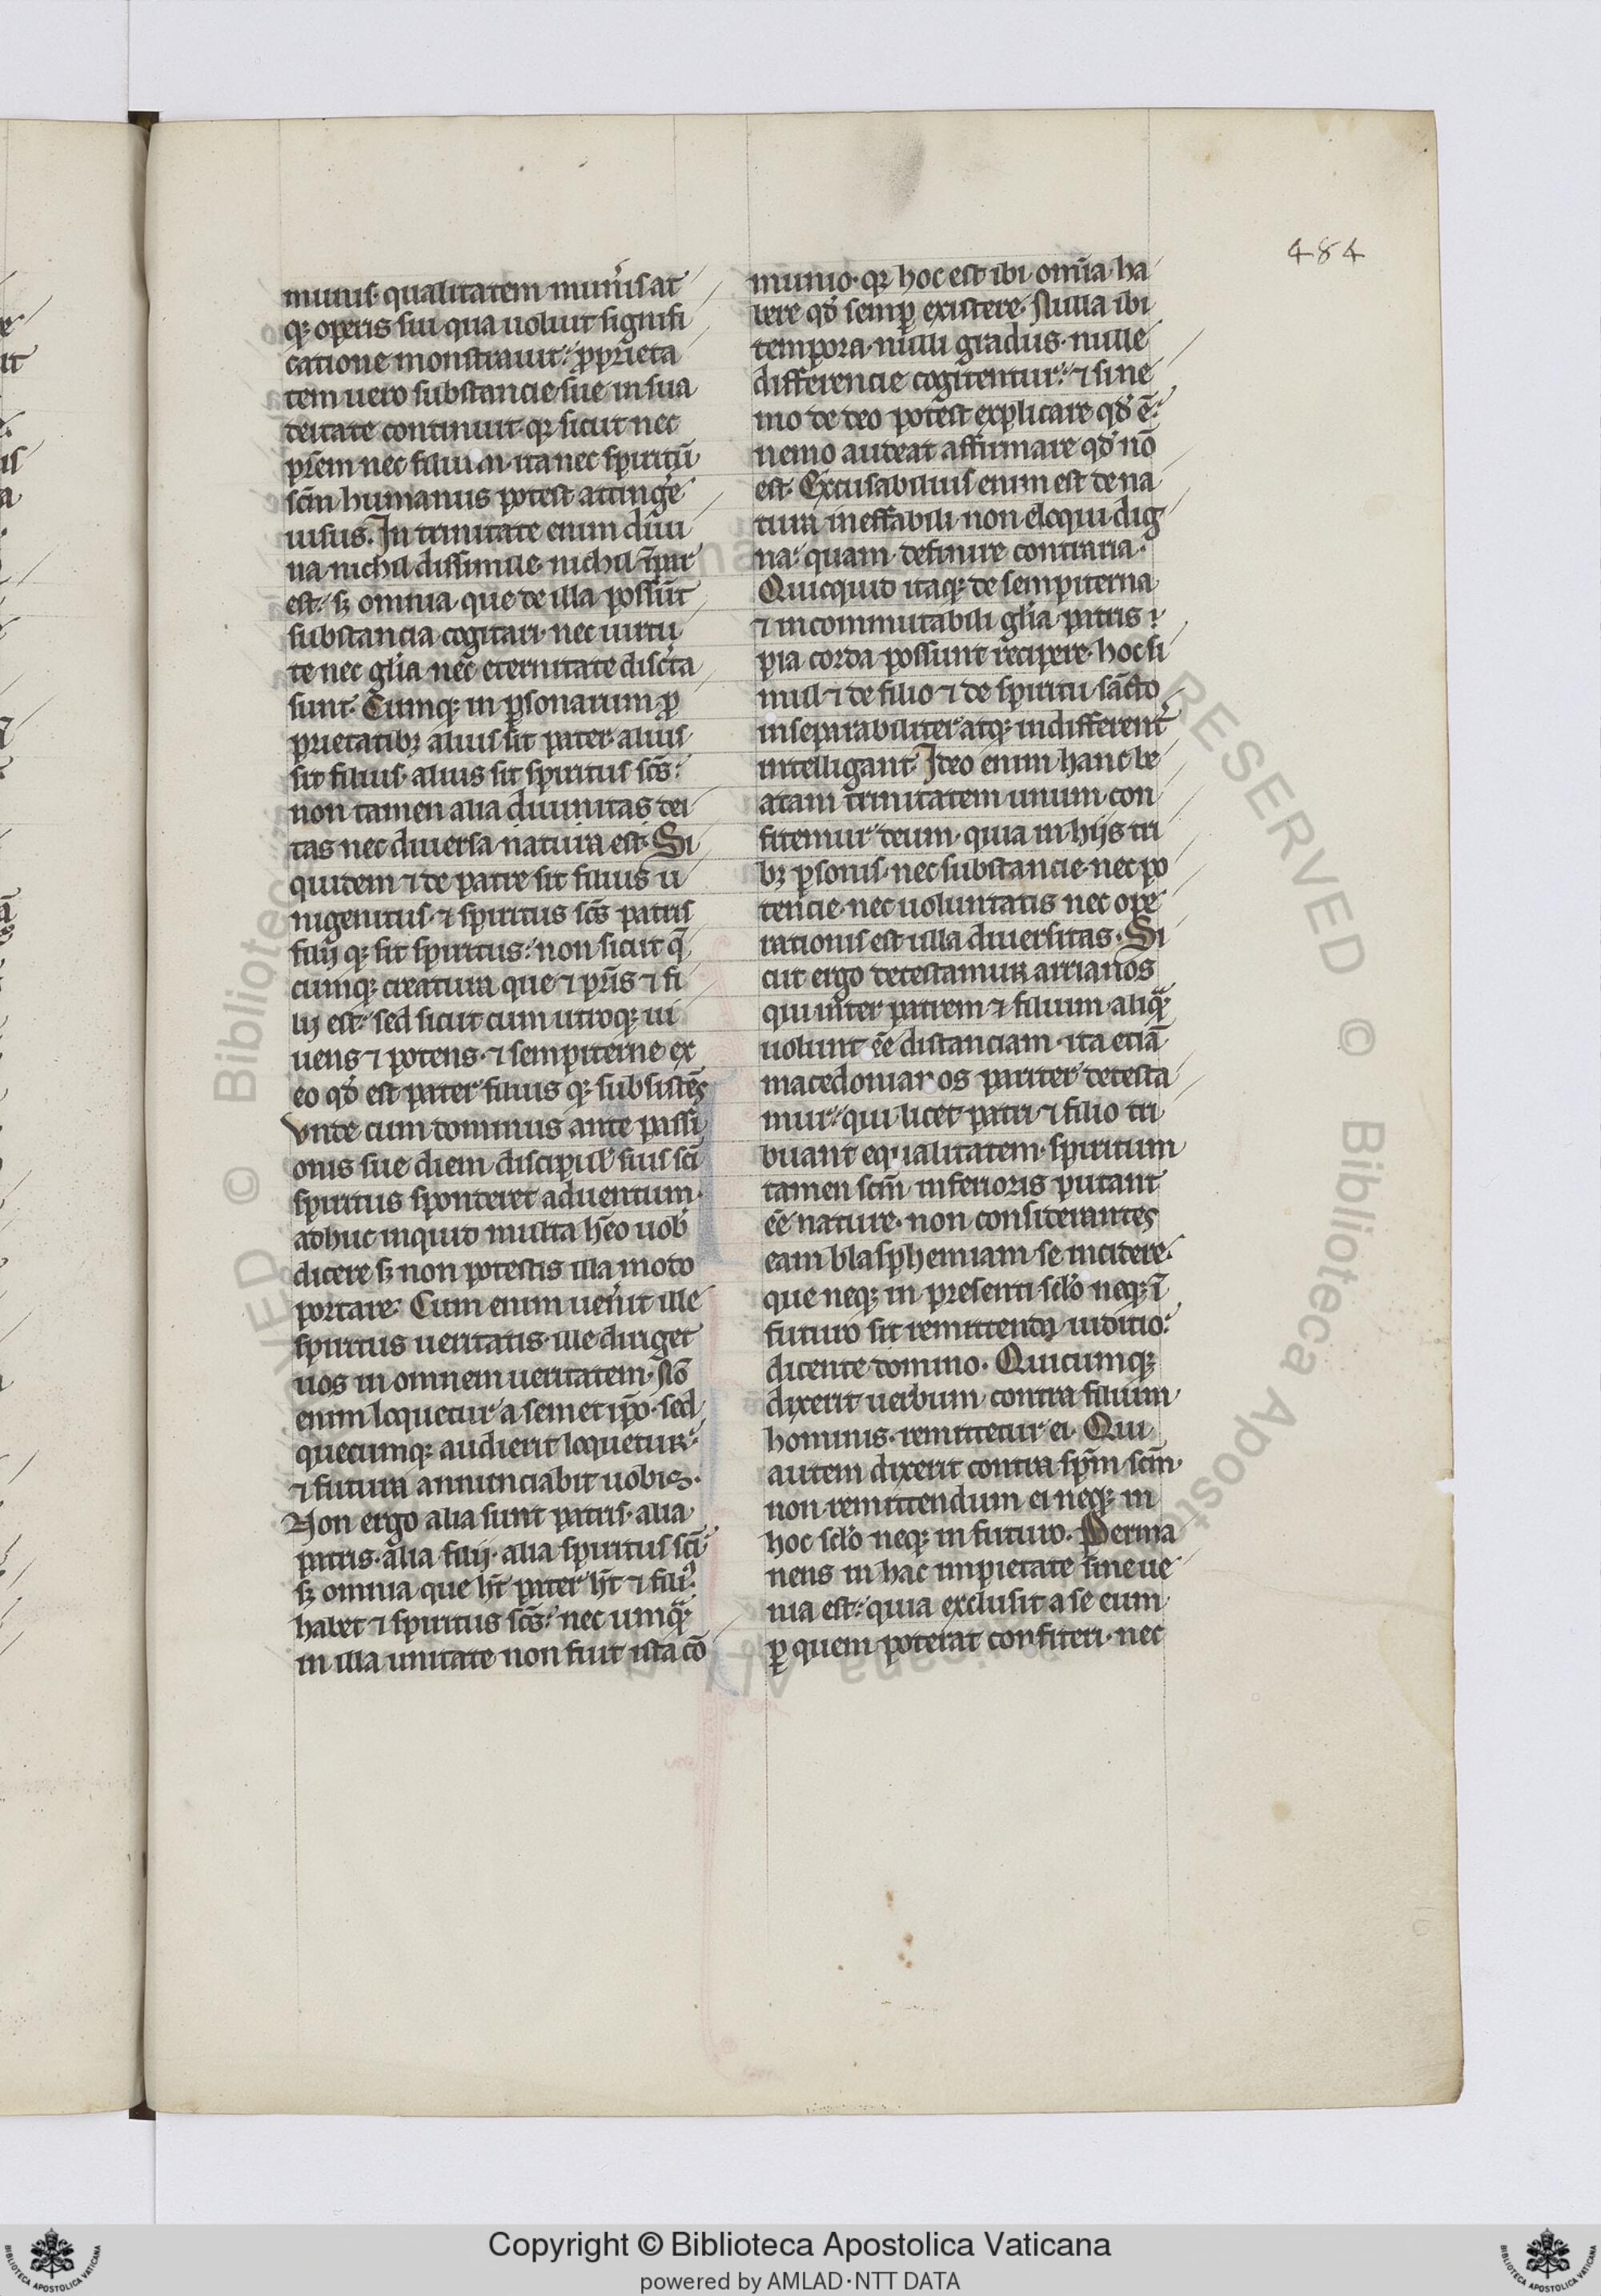 484
minus· qualitatem mun̉is at
qꝫ operis sui qua uoluit signifi
catione monstrauit. ꝓprieta
tem uero substancie sue in sua
deitate continuit· qꝛ sicut nec
pr̄em nec filium· ita nec spiritū
scm̄ humanus potest attinge᷑
uisus. In trinitate enim diui
na nichil dissimile· nichil īpar
est: sꝫ omnia que de illa possūt
substancia cogitari· nec uirtu
te nec gl̄ia nec eternitate disc͛ta
sunt. Cumqꝫ in ꝑsonarum ꝓ
prietatibꝫ alius sit pater· alius
sit filius· alius sit spiritus scs̄:
non tamen alia diuinitas dei
tas nec diuersa natura est. Si
quidem ⁊ de patre sit filius u
nigenitus· ⁊ spiritus scs̄ patris
filij qꝫ sit spiritus: non sicut q̄
cumqꝫ creatura que ⁊ pr̄is ⁊ fi
lij est: sed sicut cum utroqꝫ ui
uens ⁊ potens· ⁊ sempiterne ex
eo qd̉ est pater filius qꝫ subsistēs
Vnde cum dominus ante passi
onis sue diem discipul᷑ suis sc̄i
spiritus sponderet aduentum·
adhuc inquid multa hēo uob̉
dicere sꝫ non potestis illa modo
portare. Cum enim uen̉it ille
spiritus ueritatis· ille diriget
uos in omnem ueritatem. Nō
enim loquetur a semet ip̄o· sed
quecumqꝫ audierit loquetur:
⁊ futura annunciabit uobis.
Non ergo alia sunt patris· alia
patris· alia filij· alia spiritus sc̄i·
sꝫ omnia que ht̄ pater ht̄ ⁊ fili꜒:
habet ⁊ spiritus scs̄: nec umqᷓ
in illa unitate non fuit ista cō
munio· qꝛ hoc est ibi omīa ha
bere qd̉ semꝑ existere. Nulla ibi
tempora· nulli gradus· nulle
differencie cogitentur: ⁊ si ne
mo de deo potest explicare qd̉ ē:
nemo audeat affirmare qd̉ nō
est. Excusabilius enim est de na
tura ineffabili non eloqui dig
na: quam definire contraria.
Quicquid itaqꝫ de sempiterna
⁊ incommutabili gl̄ia patris
pia corda possunt recipere· hoc si
mul ⁊ de filio ⁊ de spiritu sācto
inseparabiliter atqꝫ indifferent᷑
intelligant. Ideo enim hanc be
atam trinitatem unum con
fitemur deum· quia in hijs tri
bꝫ ꝑsonis· nec substancie· nec po
tencie· nec uoluntatis nec ope
rationis est ulla diuersitas. Si
cut ergo detestamur arrianos
qui inter patrem ⁊ filium aliqᷓ
uolunt eē distanciam· ita eciā
macedonianos pariter detesta
mur: qui licet patri ⁊ filio tri
buant equalitatem· spiritum
tamen scm̄ inferioris putant
eē nature· non considerantes
eam blasphemiam se incidere·
que neqꝫ in presenti scl̉o neqꝫ ī
futuro sit remittenda iuditio:
dicente domino. Quicumqꝫ
dixerit uerbum contra filium
hominis· remittetur ei. Qui
autem dixerit contra spm̄ scm̄·
non remittendum ei neqꝫ in
hoc scl̉o neqꝫ in futuro. Perma
nens in hac impietate sine ue
nia est: quia exclusit a se eum
ꝑ quem poterat confiteri· nec
Copyright © Biblioteca Apostolica Vaticana
powered by AMLAD·NTT DATA